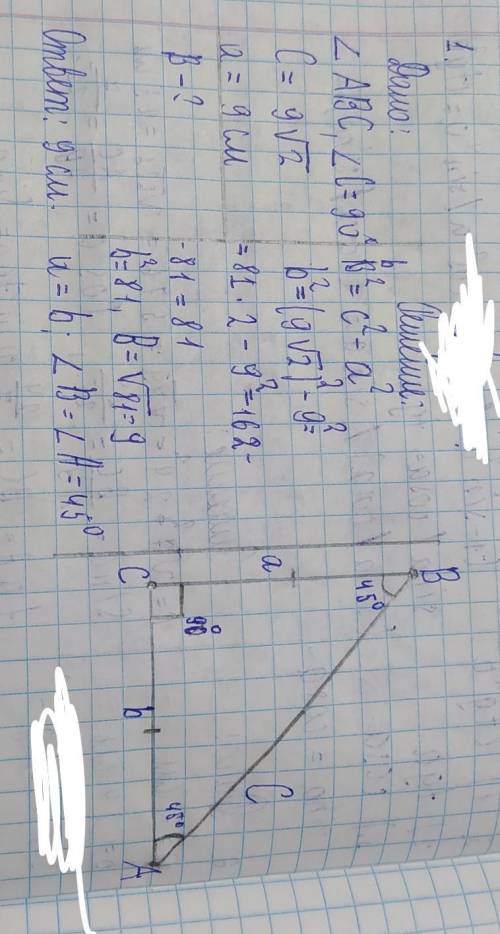 1.
Дано:
∠ABC, ∠C=90°
C = 9√2
a = 9 см
B - ?
Решение:
b² = c² - a²
b² = (9√2)² - 9² =
= 81 · 2 - 9² = 162 -
- 81 = 81
b² = 81, B = √81 = 9
a = b; ∠B = ∠A = 45°
Ответ: 9 см.
B
45°
a
C
90°
b
C
45°
A